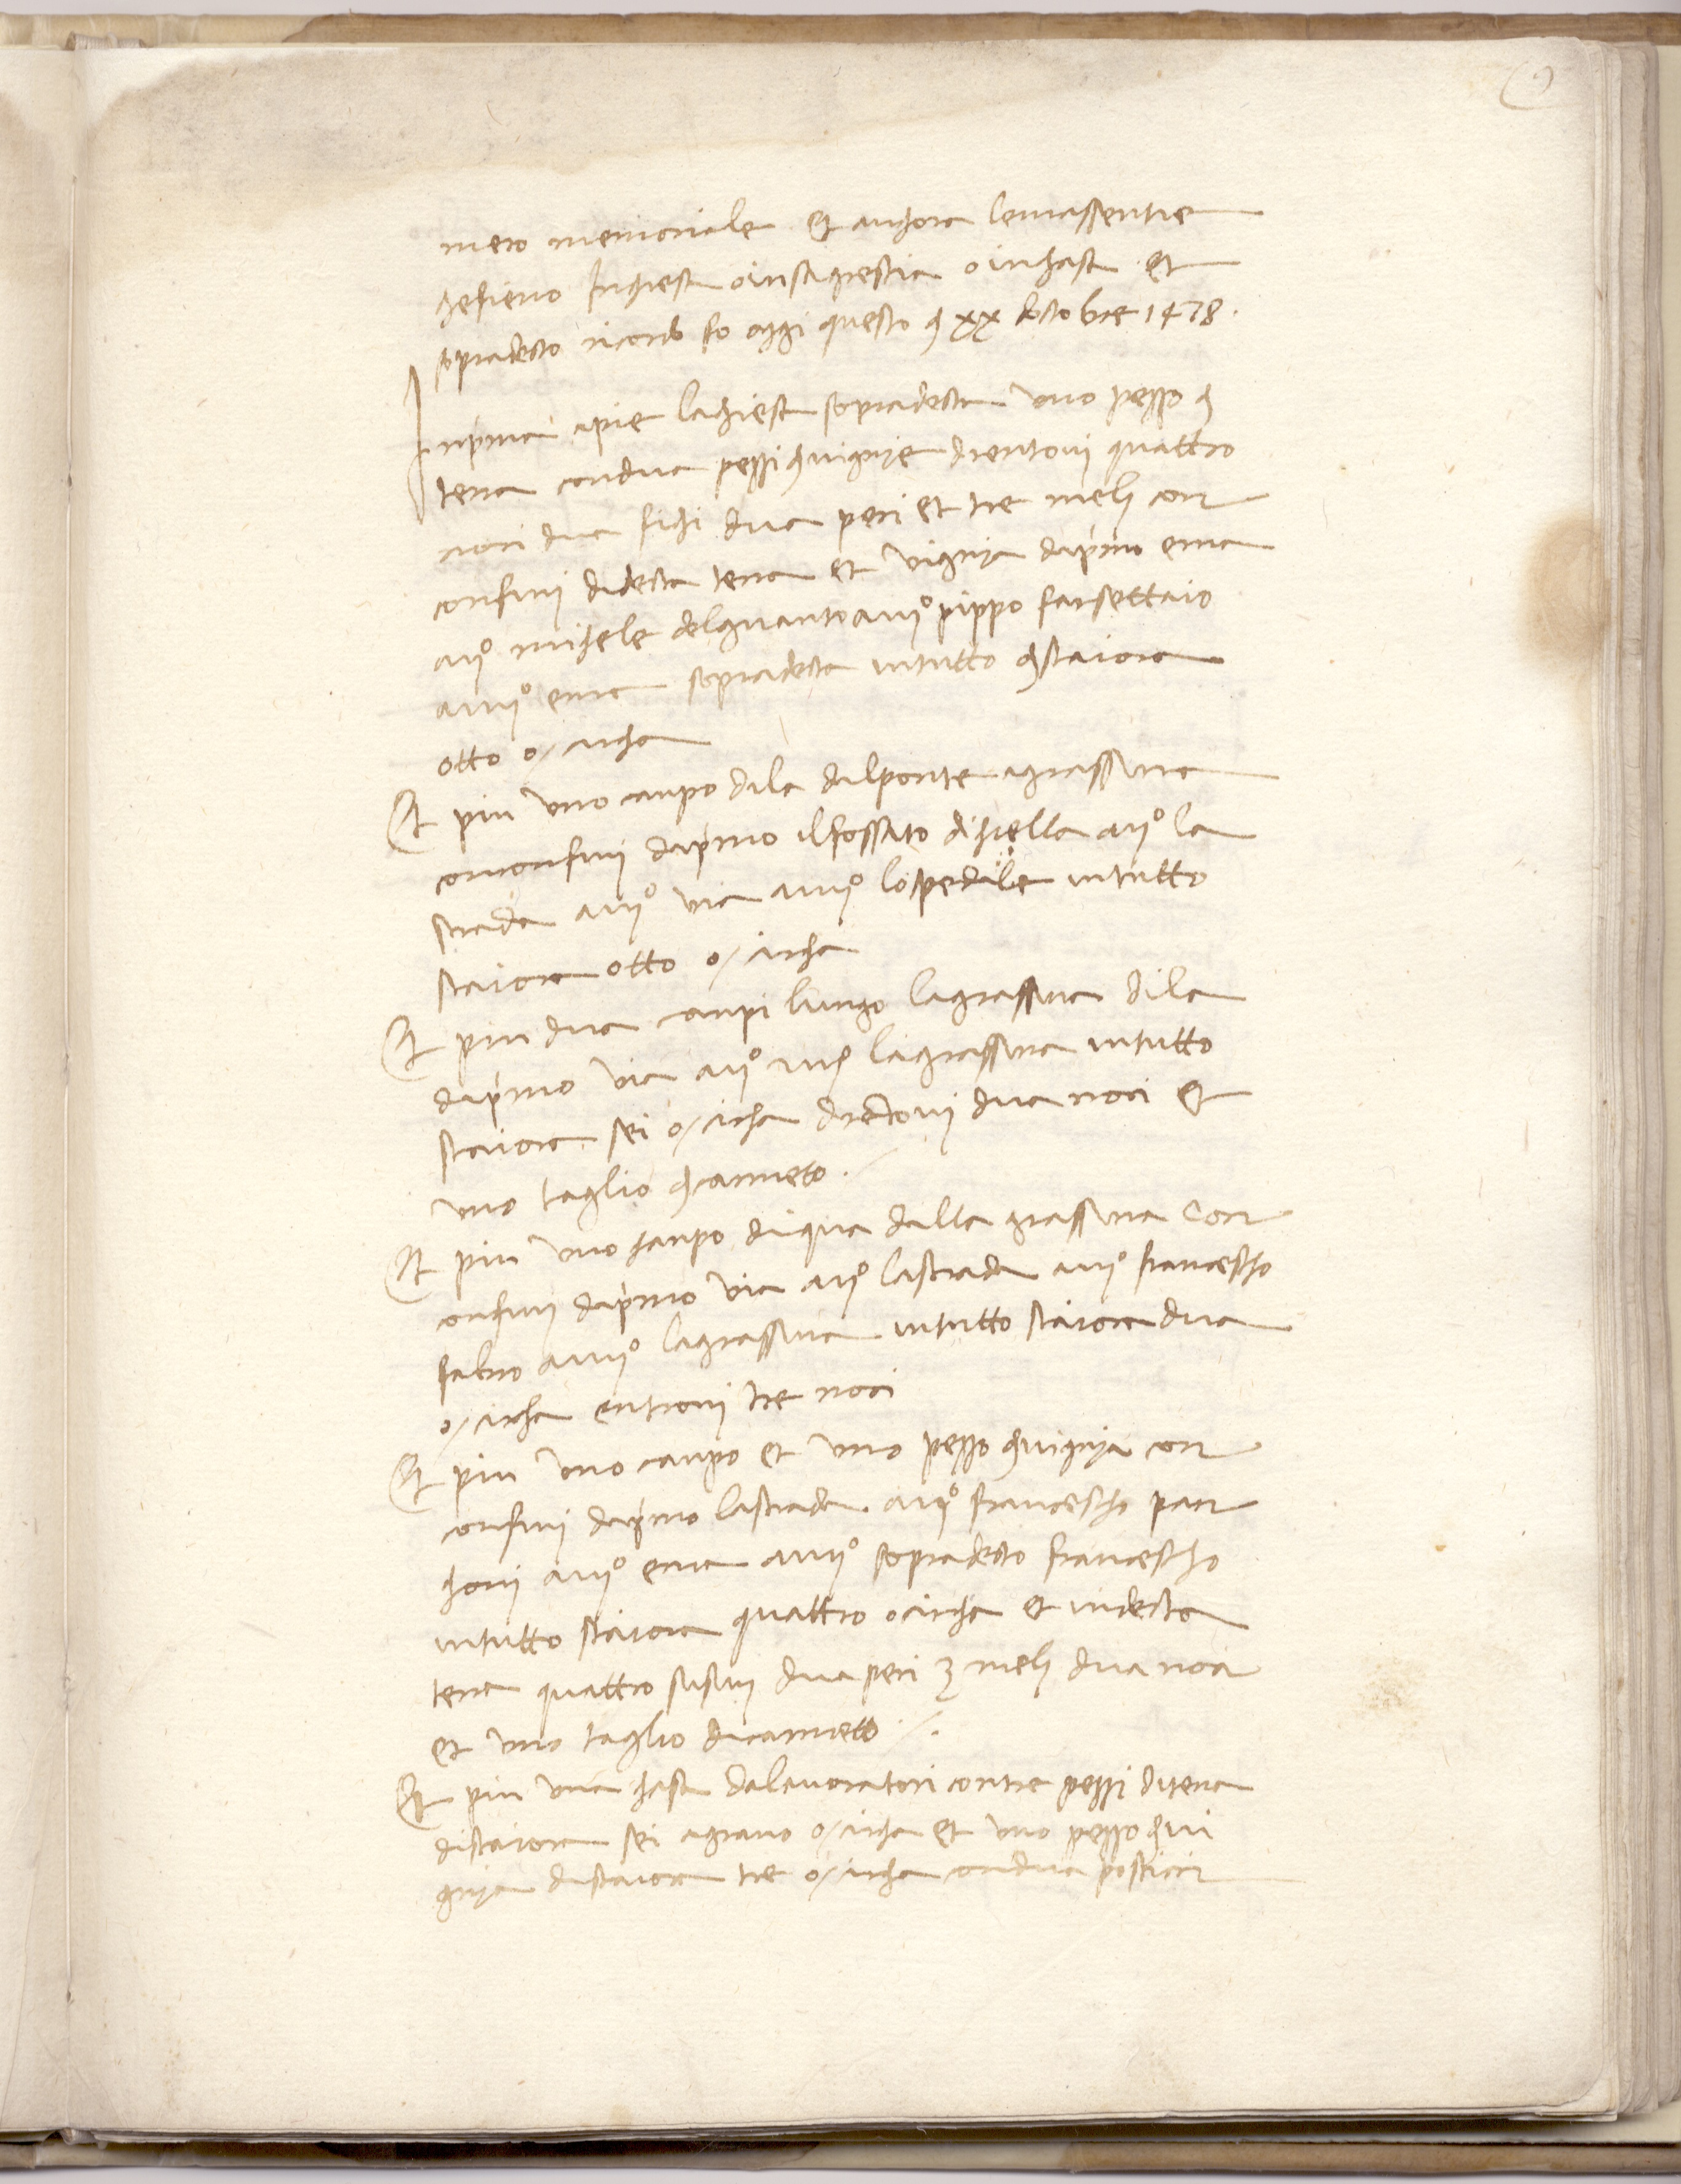 9
mero memoriale et anchora lemassentie
chesieno Inchiesa oinsagrestia oinchasa et
sopradecto ricordo fo oggi questo dì xx doctobre 1478.
Inprima apie lachiesa sopradecta uno pezzo di
terra condua pezzi divignje drentovi quattro
noci dua fichi dua peri et tre melj con
confini didecta terra et vignja daprimo ema
aijº michele delguanto aiijº pippo farsettaio
aiiijº ema sopradecta intutto distaiora
otto o/circha
Et piu uno canpo dila dalponte agrassina
conconfinj daprimo ilfossato dichiella aijº la
strada aiijº via aiiijº lospedale intutto
staiora otto o/circha
Et piu dua canpi lungo lagrassina dila
daprimo via aijº iijº lagrassina intutto
staiora sei o/circha drentovj dua noci et
uno taglio dicanneto./
Et piu uno chanpo diqua dalla grassina con
confinj daprimo via aijº lastrada aiijº francescho
fabro aiiijº lagrassina intutto staiora dua
o/circha entrovi tre noci
Et piu uno canpo et uno pezzo divignja con
confinj daprimo lastrada aijº francescho pan
chonj aiijº ema aiiijº sopradecto francescho
intutto staiora quattro ocircha et indecta
terra quattro susinj dua peri 3 melj dua noci
et uno taglio dicanneto./.
Et piu una chasa dalavoratori contre pezzi diterra
distaiora sei agrano o/circha et uno pezzo divi
gnja distaiora tre o/circha condua posticci